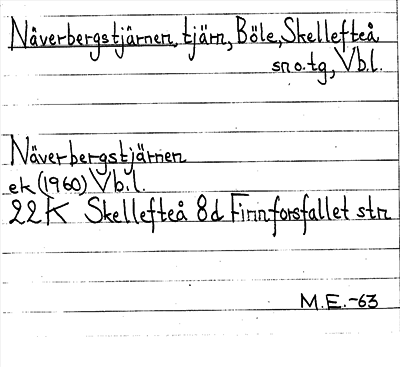 Näverbergstjärnen, tjärn, Böle, Skellefteå
sn o. tg, Vb.l.
Näverbergstjärnen
ek (1960) Vb.l.
22K Skellefteå 8d Finnforsfallet str.
M.E.-63